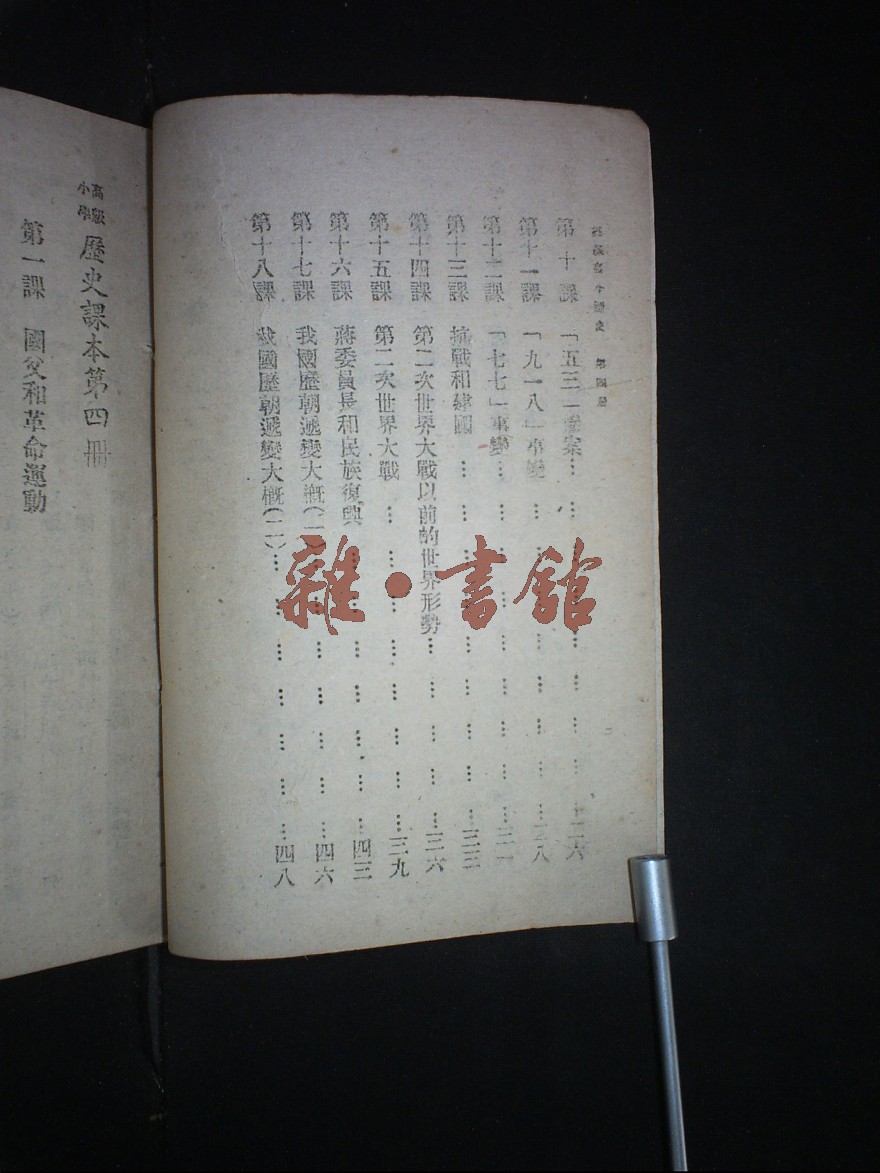 第四冊
第十課 「五三」慘案… … … … … … … …二六
第十一課 「九一八」事變… … … … … … … …二八
第十二課 「七七」事變… … … … … … … …三一
第十三課 抗戰和建國… … … … … … … …三三
第十四課 第二次世界大戰以前的世界形勢… … … …三六
第十五課 第二次世界大戰… … … … … … …三九
第十六課 蔣委員長和民族復興… … … … … …四三
第十七課 我國歷朝遞變大概(一)… … … … … …四六
第十八課 我國歷朝遞變大概(二)… … … … … …四八
高級小學 歷史課本第四冊
第一課 國父和革命運動
雜·書館